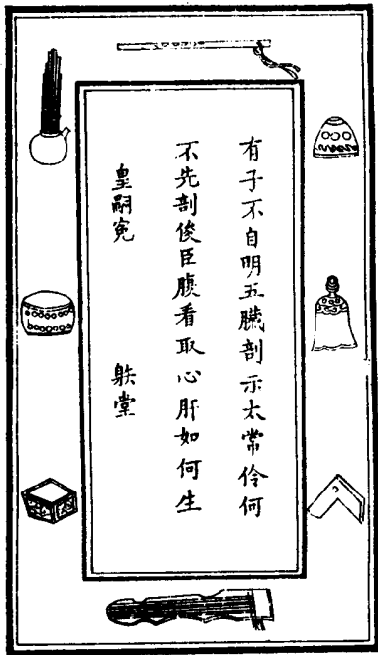 有子不自明五臟剖示太常伶何
不先剖俊臣腹看取心肝如何生
皇嗣寃
堂